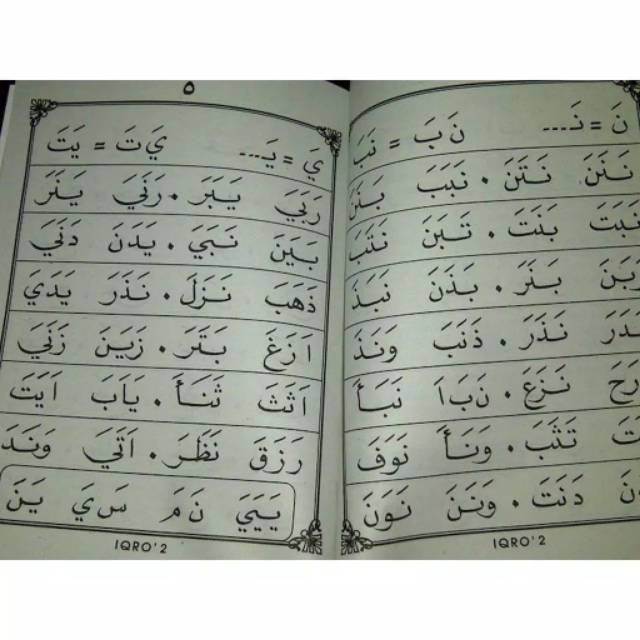 نَ = نَـ... نَ بَ = نَبَ
نَنَنَ نَتَنَ . نَبَبَ بَنَنَ
نَبَتَ بَنَتَ . تَبَنَ
بَنَرَ . بَذَنَ نَبَذَ
نَذَرَ . ذَنَبَ وَنَذَ
نَزَعَ . نَبَ اَ نَبَأَ
وَنَأَ نَوَفَ
دَنَتَ . وَنَنَ نَوَنَ
IQRO' 2
٥
يَ = يَـ... يَ تَ = يَتَ
رَبَيَ يَبَرَ . رَنَيَ يَنَرَ
بَيَنَ نَبَيَ . يَدَنَ دَنَيَ
ذَهَبَ نَزَلَ . نَذَرَ يَدَيَ
اَزَغَ بَتَرَ . زَيَنَ زَنَيَ
اَثَثَ ثَنَأَ . يَابَ اَيَتَ
رَزَقَ نَظَرَ . اَتَيَ وَنَدَ
يَيَيَ نَ مَ سَ يَ يَنَ
IQRO' 2